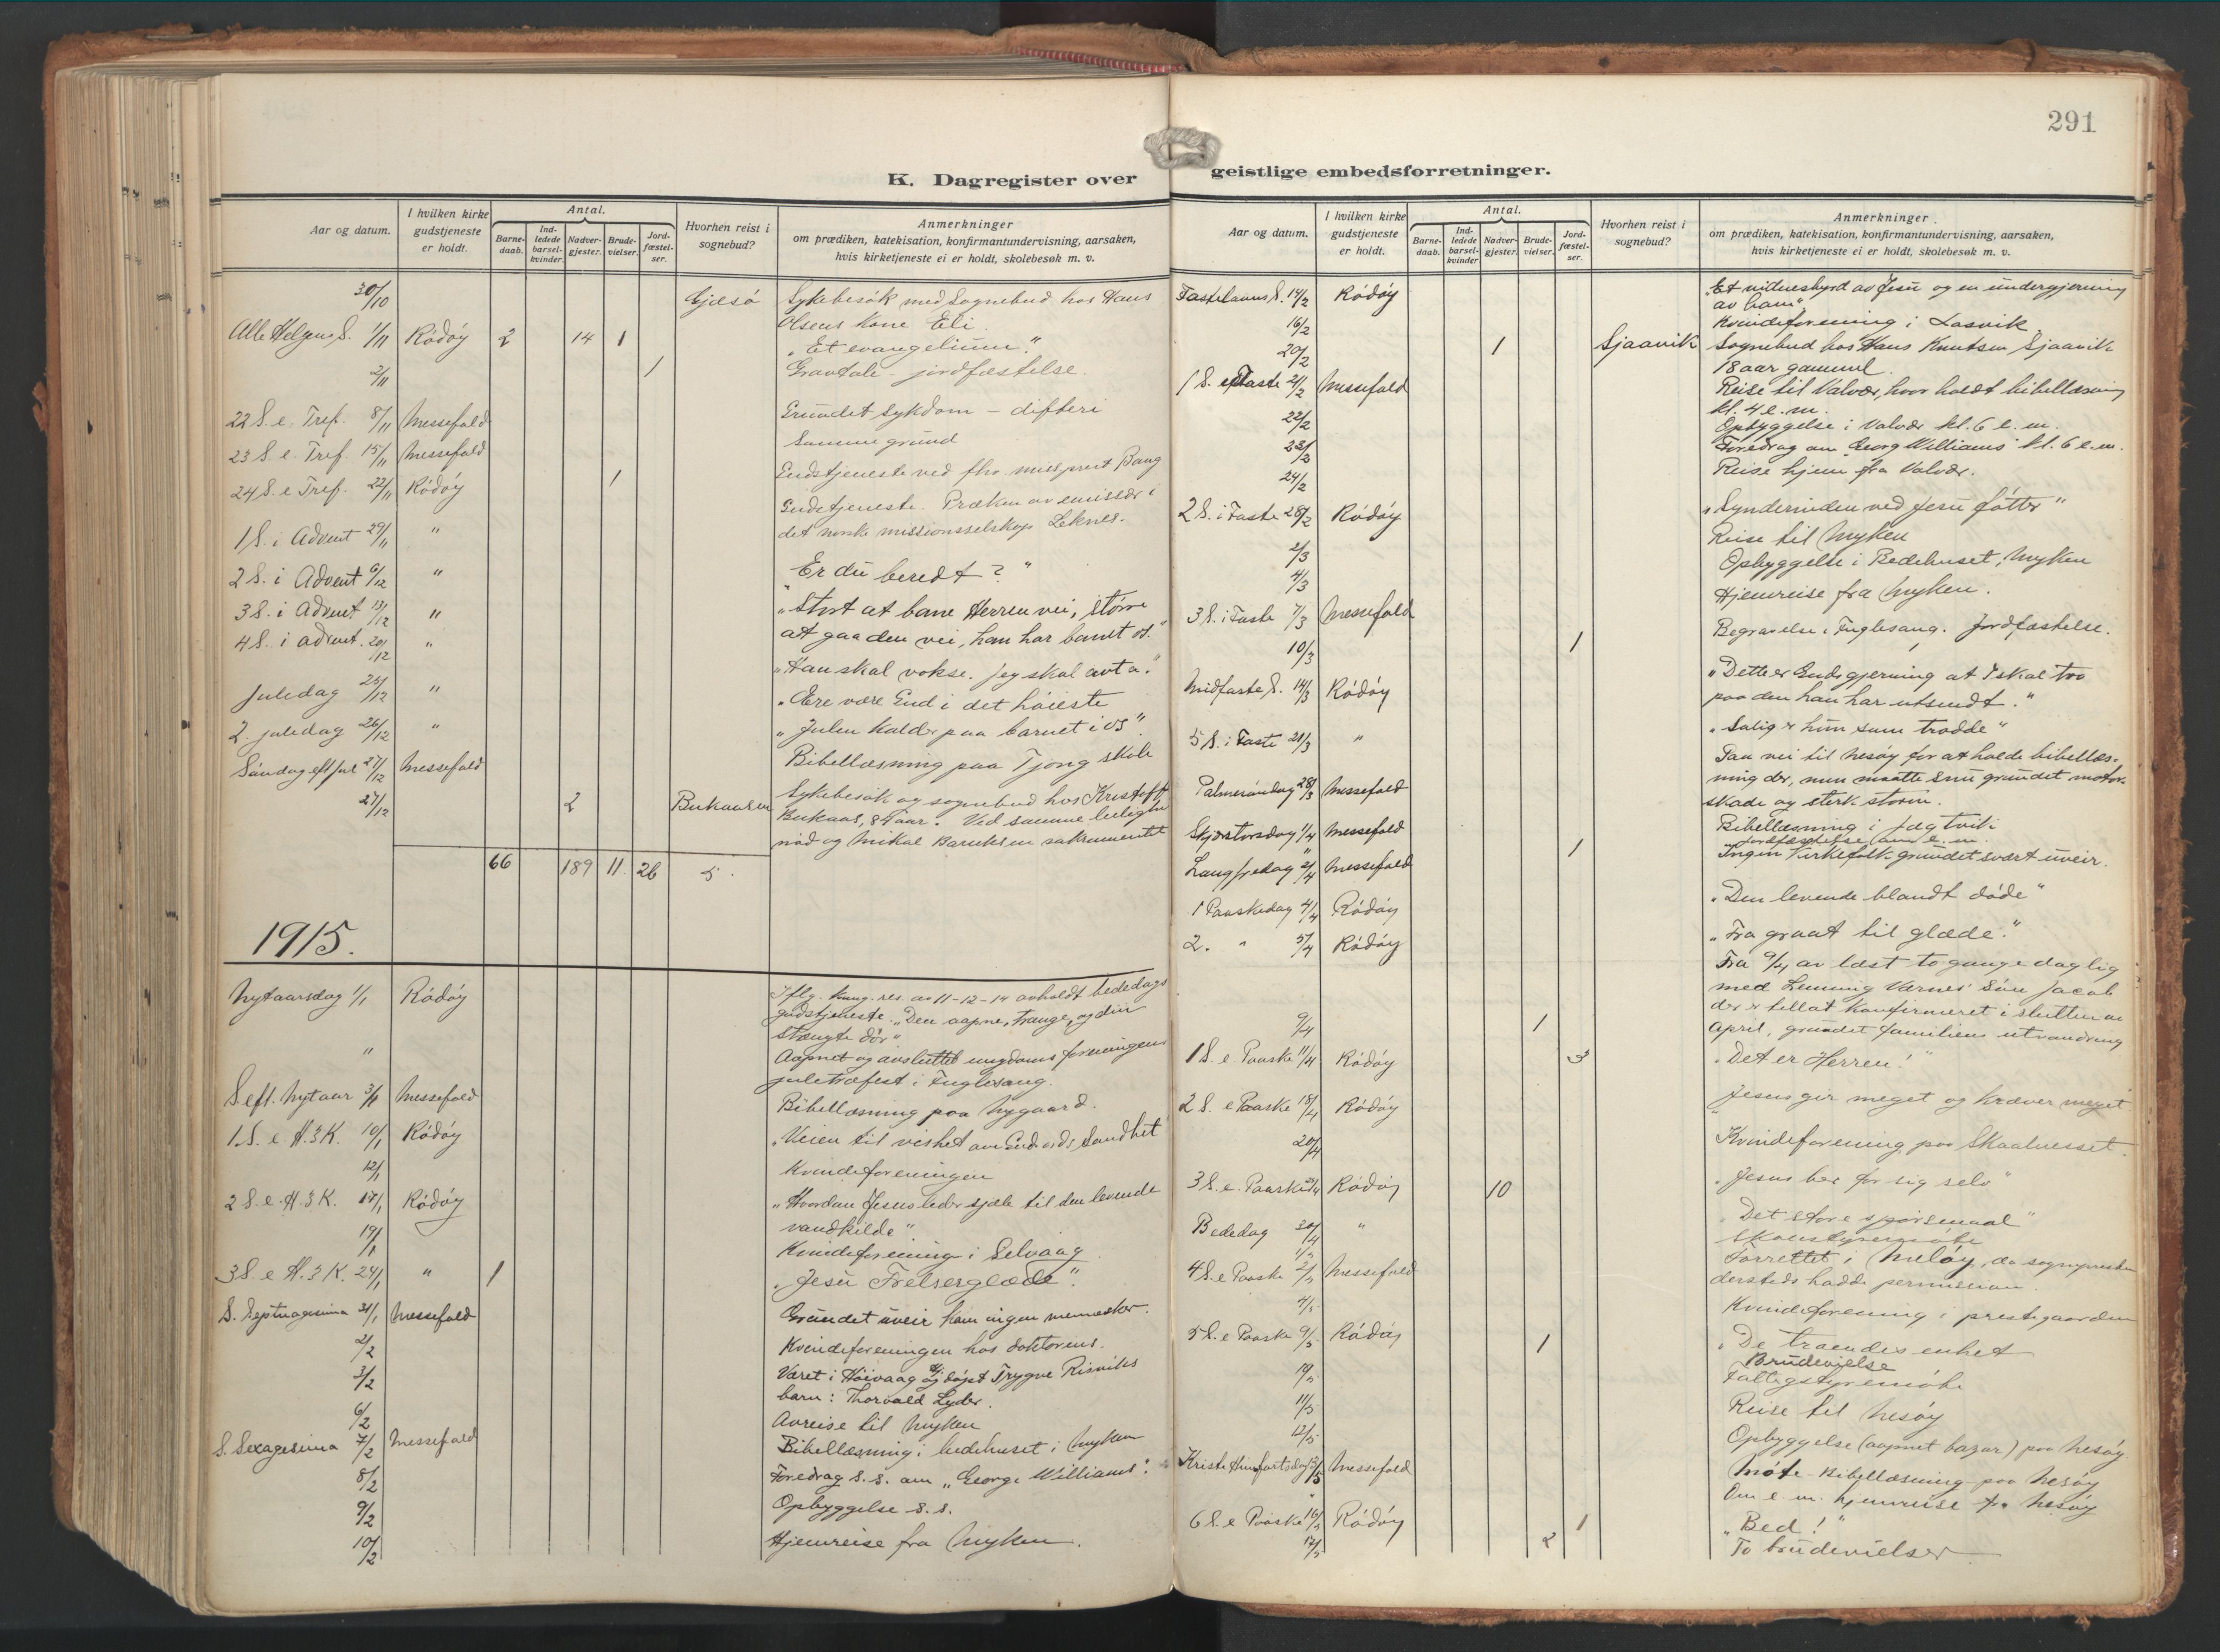 K. Dagregister over
Aar og datum.
I hvilken kirke gudstjeneste er holdt.
Antal.
Barnedaab.
Indledede barselkvinder.
Nadvergjester.
Brudevielser.
Jordfæstelser.
Hvorhen reist i sognebud?
Anmerkninger
om prædiken, katekisation, konfirmantundervisning, aarsaken,
hvis kirketjeneste ei er holdt, skolebesøk m. v.
30/10 Gjæsö Sykebesök med Sognebud hos Hans
Olsens Kone Eli.
Alle Helgens S. 1/11 Rödöy 2 14 1 "Et evangelium".
2/11 1 Gravtale - jordfæstelse.
22 S. e. Tref. 8/11 Messefold Grundet sykdom - difteri
23 S. e. Tref. 15/11 Messefold Samme grund
24 S. e Tref. 22/11 Rödöy 1 Gudstjeneste ved fhv. Bang
1 S. i Advent 29/11 " Gudstjeneste. Præken av emissær i
det norske missionsselskap Leknes.
2 S. i Advent 6/12 " "Er du beredt?"
3 S. i Advent 13/12 " "Stort at bane Herren vei, större
at gaa den vei, han har banet os."
4 S. i advent. 20/12 " "Han skal vokse. Jeg skal avta."
Juledag 25/12 " "Ære være Gud i det höieste
2. juledag 26/12 " "Julen kalder paa barnet i os".
Söndag eft jul 27/12 Messefold Bibellæsning paa Tjong skole
27/12 2 Sykebesök og sognebud hos Kristoffer
Bukaas, 84 aar. Ved samme leilighet
nöd og Mikal Baruksen sakramentet
66 189 11 26 5.
1915.
Nytaarsdag 1/1 Rödöy Iflg. kung. res. av 11-12-14 avholdt bededags
gudstjeneste. "Den aapne, trange, og den
stængte dör"
" Aapnet og avsluttet ungdomsforeningens
juletræfest i Fuglesang.
S. eft. Nytaar 3/1 Messefold Bibellæsning paa Nygaard.
1 S. e. H. 3 K. 10/1 Rödöy "Veien til vished om Guds ords Sandhet"
12/1 Kvindeforeningen
2 S. e. H. 3 K. 17/1 Rödöy "Hvordan Jesus leder sjæle til den levende
vandkilde".
19/1 Kvindeforening i Selvaag
3 S. e H. 3 K. 24/1 " 1 "Jesu Frelserglæde".
S. Septuagesima 31/1 Messefold Grundet uveir kom ingen mennesker.
2/2 Kvindeforeningen hos doktorens.
3/2 Været i Höivaag og döpt Trygve Risviks
barn: Thorvald Lyder.
6/2 Avreise til Myken
S. Sexagesima 7/2 Messefold Bibellæsning i bedehuset i Myken
8/2 Foredrag s. s. om "George Williams".
9/2 Opbyggelse s. s.
10/2 Hjemreise fra Myken.
291
geistlige embedsforretninger.
Aar og datum.
I hvilken kirke gudstjeneste er holdt.
Antal.
Barnedaab.
Indledede barselkvinder
Nadvergjester.
Brudevielser.
Jordfæstelser.
Hvorhen reist i sognebud?
Anmerkninger
om prædiken, katekisation, konfirmantundervisning, aarsaken,
hvis kirketjeneste ei er holdt, skolebesøk m. v.
Fastelavns S. 14/2 Rödöy "Et vidnesbyrd av Jesu og en undergjerning
av ham"
16/2 Kvindeforening i Lasvik
20/2 1 Sjaavik Sognebud hos Hans Knutsen Sjaavik
18 aar gammel.
1 S. i Faste 21/2 Messefold Reise til Valvær, hvor holdt bibellæsning
kl. 4 e. m.
22/2 Opbyggelse i Valvær kl. 6 e. m.
23/2 Foredrag om Georg Williams kl. 6 e. m.
24/2 Reise hjem fra Valvær.
2 S. i Faste 28/2 Rödöy "Synderinden ved Jesu fötter"
2/3 Reise til Myken
4/3 Opbyggelse i Bedehuset, Myken
3 S. i Faste 7/3 Messefold Hjemreise fra Myken.
10/3 1 Begravelse i Fuglesang. Jordfæstelse.
Midfaste S. 14/3 Rödöy "Dette er Guds gjerning at I skal tro
paa den han har utsendt."
5 S. i Faste 21/3 " "Salig er hun som trodde"
Palmesöndag 28/3 Messefold Paa vei til Nesöy for at holde bibellæsning
der, men maatte snu grundet motorskade
og sterk storm.
Skjærtorsdag 1/4 Messefold Bibellæsning i Jægtvik
" 1 Jordfæstelse e. m.
Langfredag 2/4 Messefold Ingen Kirkefolk grundet svært uveir.
1 Paaskedag 4/4 Rödöy "Den levende blandt döde"
2. " 5/4 Rödöy "Fra graat til glæde."
Fra 9/4 av læst to gange daglig
med Lemming Værnes' Sön Jacob
der er tillat konfirmeret i slutten av
April, grundet familiens utvandring
9/4 1
1 S. e. Paaske 11/4 Rödöy 3 "Det er Herren!"
2 S. e Paaske 18/4 Rödöy "Jesus gir meget og kræver meget"
20/4 Kvindeforening paa Skaalnesset.
3 S. e. Paaske 25/4 Rödöy 10 "Jesus ber for sig selv"
Bededag 30/4 " "Det store spörsmaal"
1/5 Skolestyremöte
4 S. e Paaske 2/5 Messefold Forrettet i Melöy, da sognepresten
dersteds hadde permission.
4/5 Kvindeforening i prestegaarden
5 S. e Paaske 9/5 Rödöy 1 "De troendes enhet
Brudevielse
10/5 Fattigstyremöte
11/5 Reise til Nesöy
12/5 Opbyggelse (aapnet bazar) paa Nesöy
Kristi Himmelfartsdag 13/5 Messefold Möte - Bibellæsning paa Nesöy
" Om e. m. hjemreise fra Nesöy
6 S. e Paaske 16/5 Rödöy 1 "Bed!"
17/5 2 To brudevielser